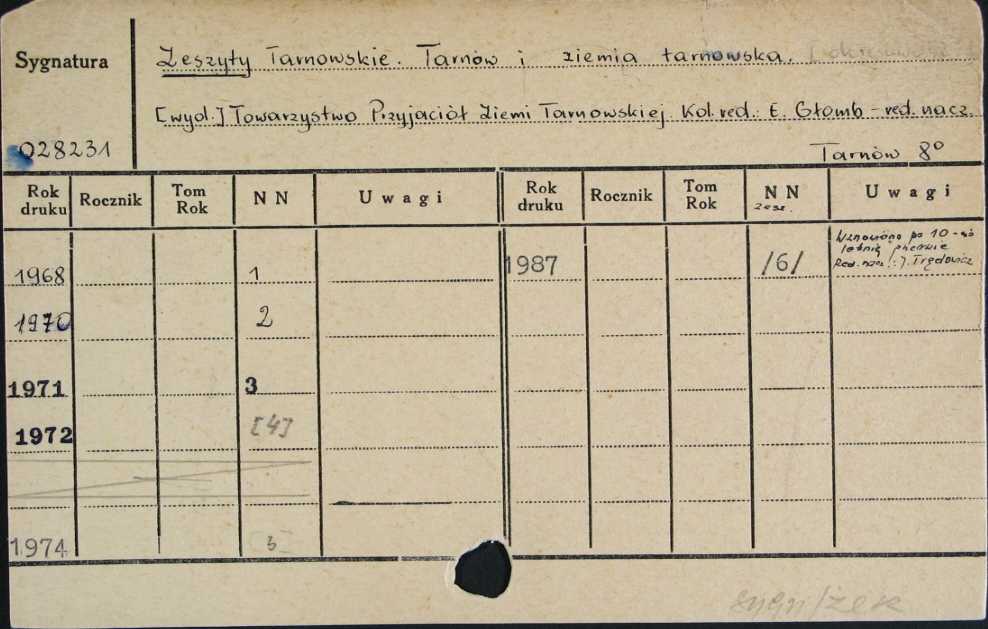 Sygnatura
Zeszyty Tarnowskie. Tarnów i ziemia tarnowska.
[wyd.] Towarzystwo Przyjaciół Ziemi Tarnowskiej Kol. red.: E. Głomb - red. nacz.
028231
Tarnów 8°
Rok druku Rocznik Tom Rok N N Uwagi Rok druku Rocznik Tom Rok N N zesz. Uwagi
Wznowiono po 10-cio
letniej przerwie
1968 1 1987 /6/ Red. nacz.: J. Trędowicz
1970 2
1971 3
1972 [4]
1974 5